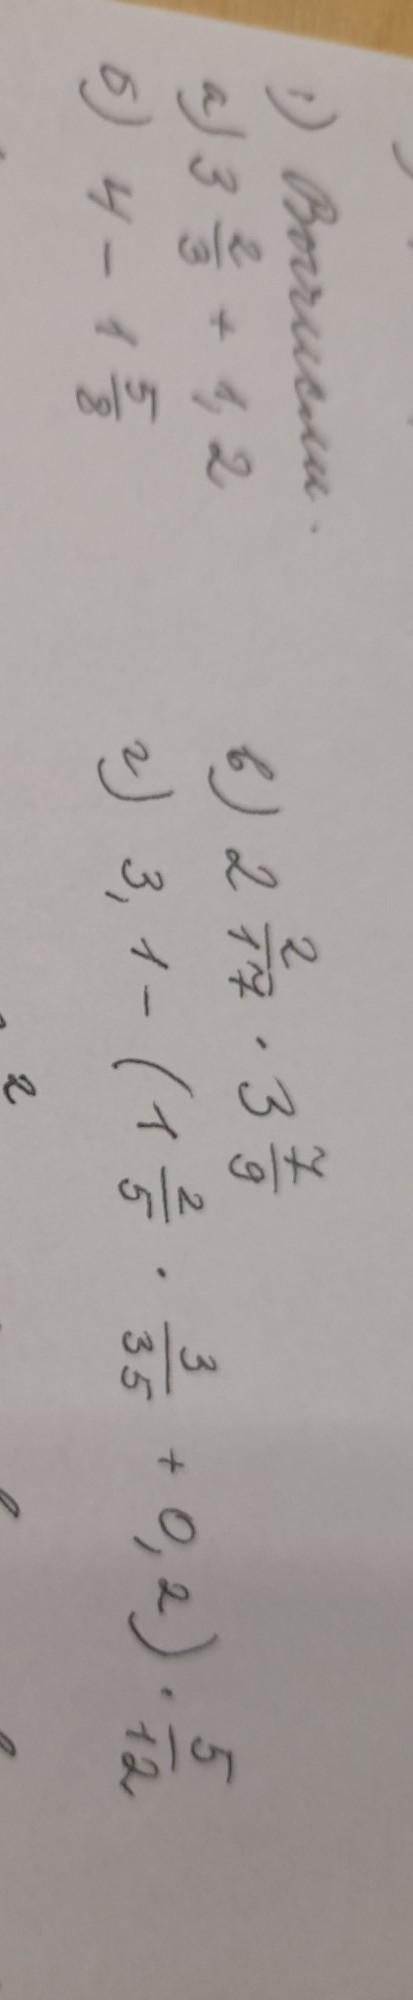 1) Вычисли.
а) 3 2/3 + 1,2
б) 4 - 1 5/8
в) 2 2/17 · 3 7/9
г) 3,1 - (1 2/5 · 3/35 + 0,2) · 5/12
2